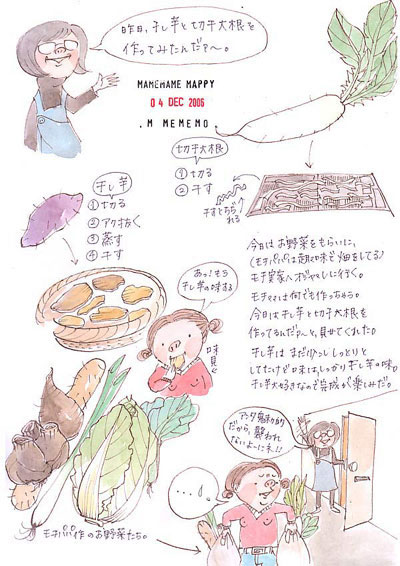 昨日、干し芋と切干大根を
作ってみたんだァ〜。
MAMEMAME MAPPY
04 DEC 2006
.M MEMEMO.
切干大根
①切る
②干す
干すとちぢ
れる
干し芋
①切る
②アク抜く
③蒸す
④干す
あっ!もう
干し芋の味する
味見
今日はお野菜をもらいに、
(モチパパは趣味で畑をしてる)
モチ実家へオジャマしに行く。
モチママは何でも作っちゃう。
今日は干し芋と切干大根を
作ってるんだァ〜と、見せてくれた。
干し芋は まだ少ししっとりと
してたけど味は、しっかり干し芋の味。
干し芋大好きなので完成が楽しみだ。
アンタ魅力的
だから、襲われ
ないよーにネ!!
・・・。
モチパパ作のお野菜たち。